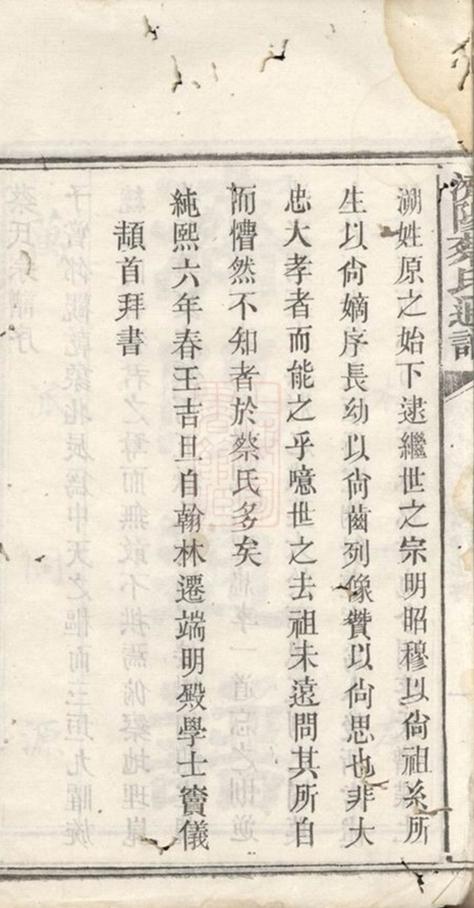 濟陽蔡氏通譜
溯姓原之始下逮繼世之宗明昭穆以尙祖系所
生以尙嫡序長幼以尙齒列像贊以尙思也非大
忠大孝者而能之乎噫世之去祖未遠問其所自
而懵然不知者於蔡氏多矣
純熙六年春王吉旦自翰林遷端明殿學士竇儀
頓首拜書